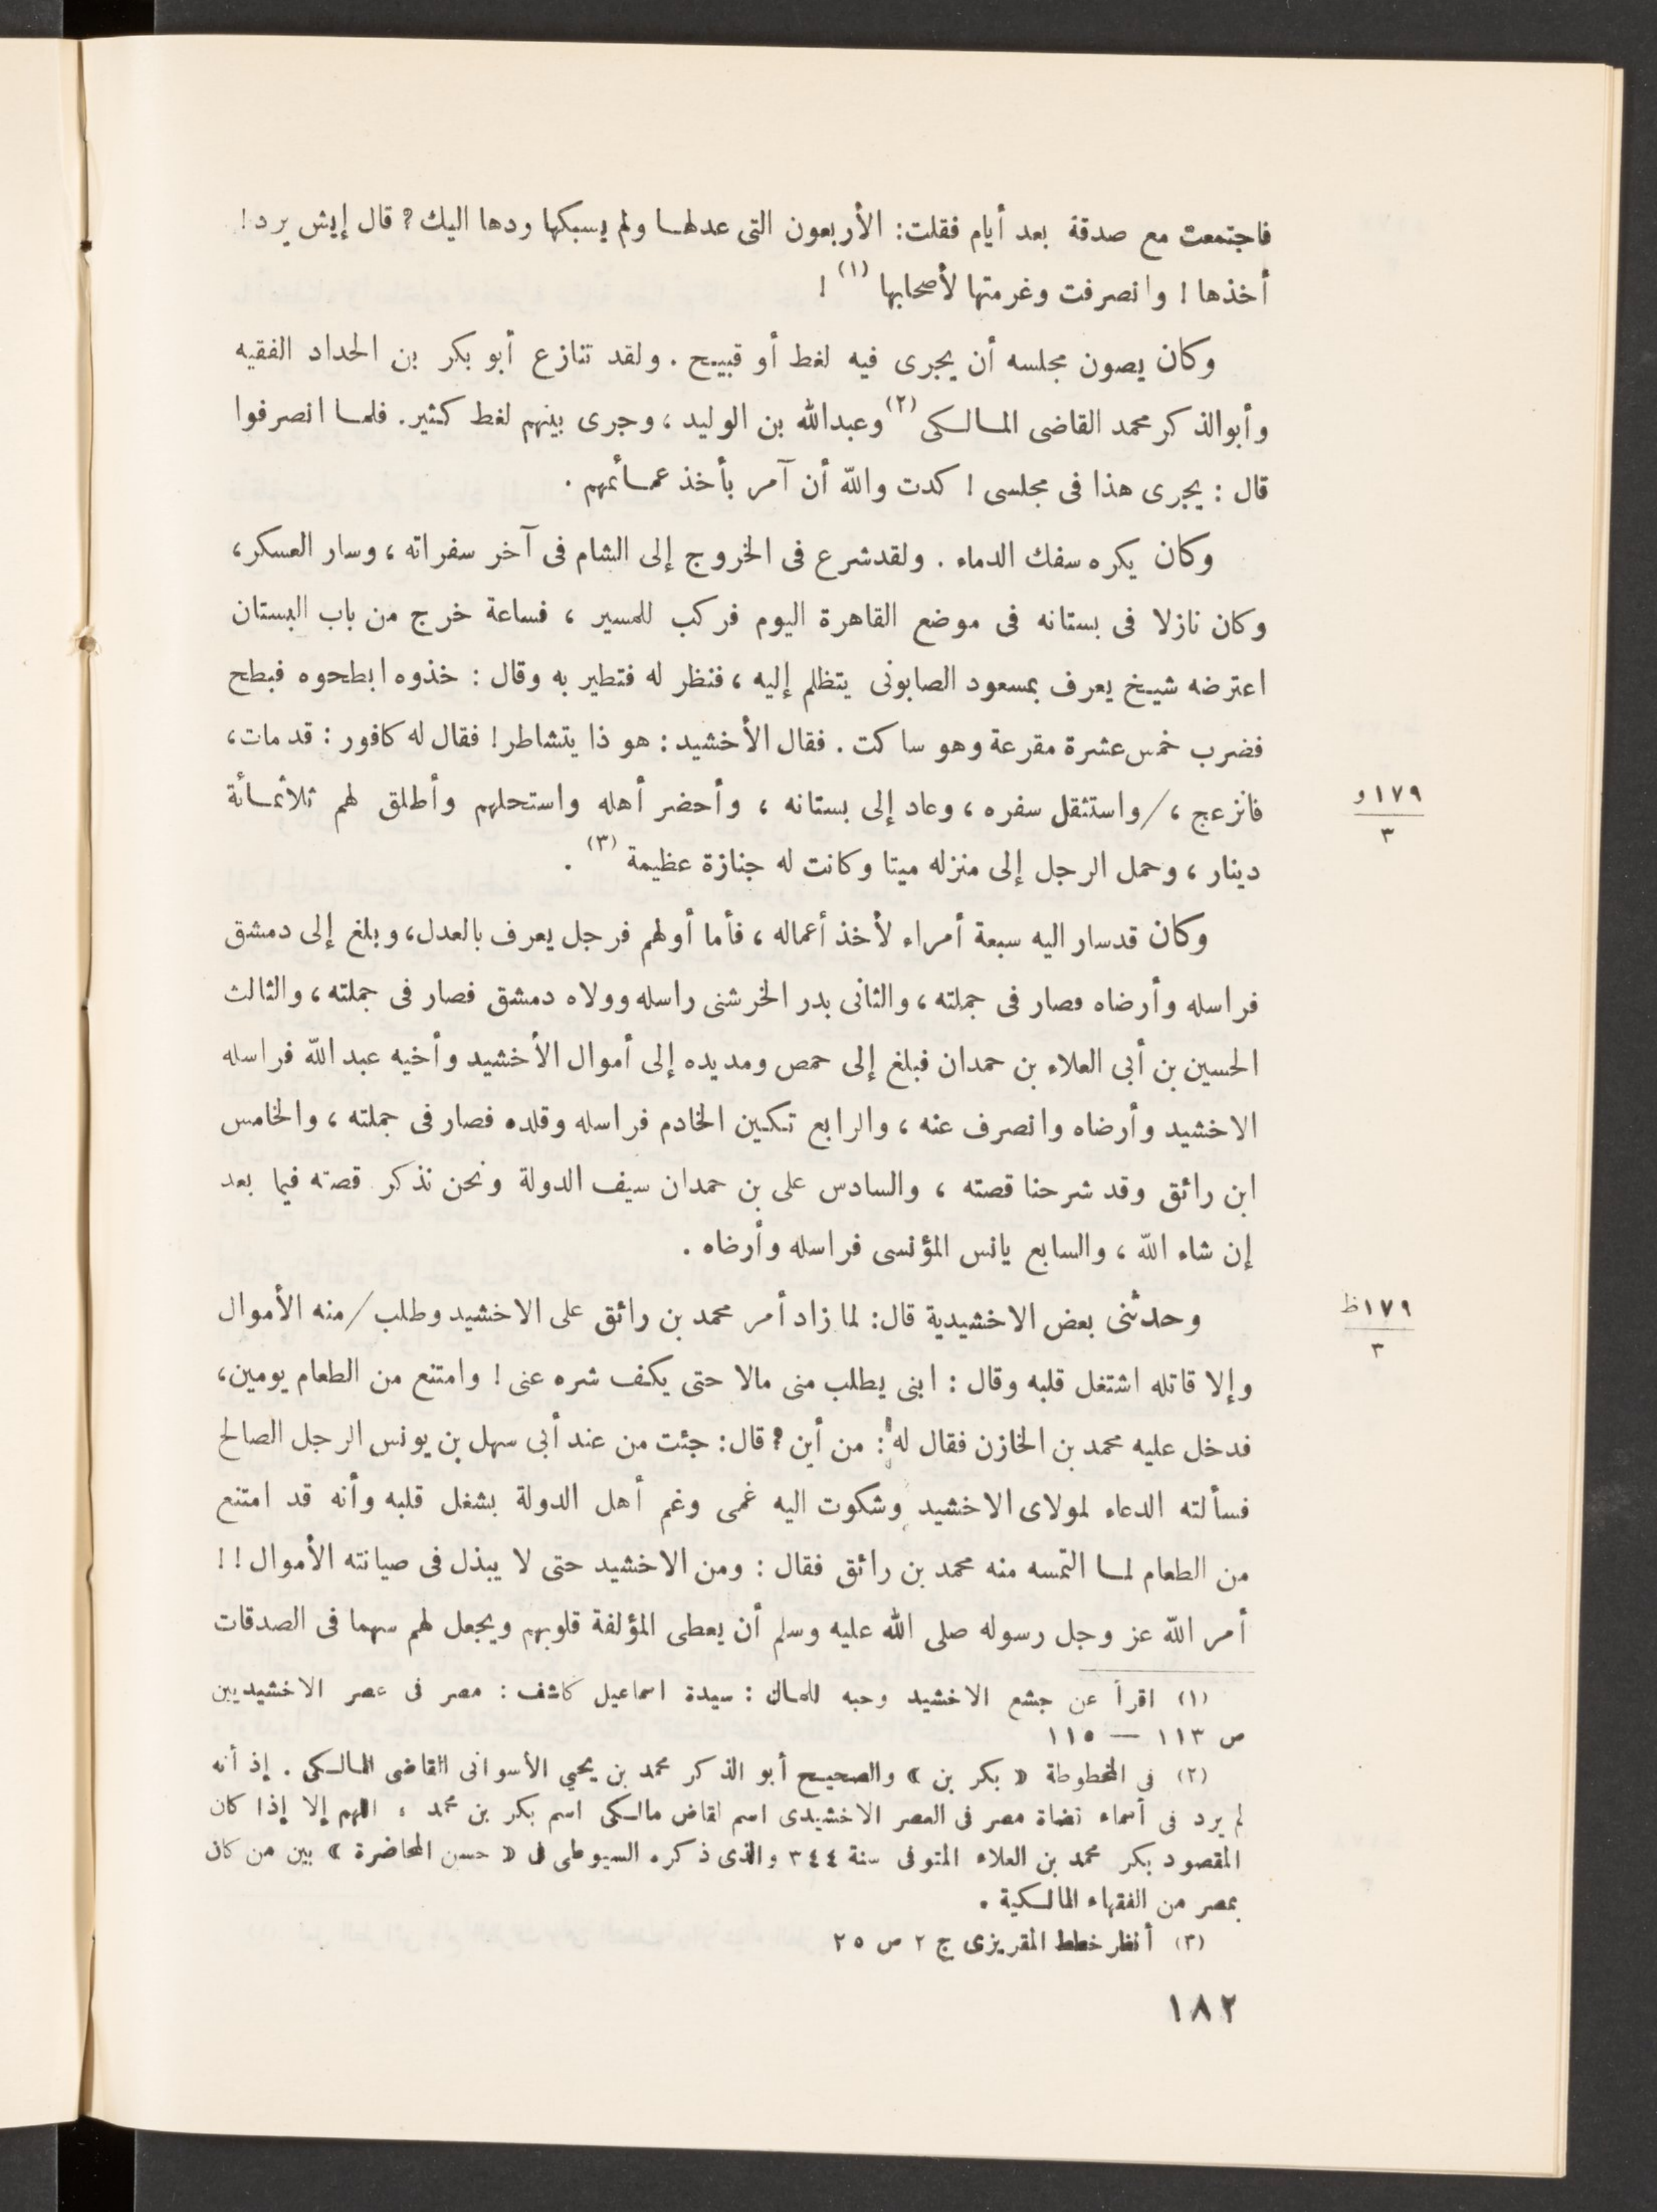 فاجتمعت مع صدقة بعد أيام فقلت: الأربعون التى عدلها ولم يسبكها ردها اليك؟ قال إيش يرد!
أخذها! وانصرفت وغرمتها لأصحابها (١)!
وكان يصون مجلسه أن يجرى فيه لغط أو قبيح. ولقد تنازع أبو بكر بن الحداد الفقيه
وأبوالذكر محمد القاضى المالكى (٢) وعبدالله بن الوليد، وجرى بينهم لغط كثير. فلما انصرفوا
قال: يجرى هذا فى مجلسى! كدت والله أن آمر بأخذ عمائمهم.
وكان يكره سفك الدماء. ولقدشرع فى الخروج إلى الشام فى آخر سفراته، وسار العسكر،
وكان نازلا فى بستانه فى موضع القاهرة اليوم فركب للمسير، فساعة خرج من باب البستان
اعترضه شيخ يعرف بمسعود الصابونى يتظلم إليه، فنظر له فتطير به وقال: خذوه ابطحوه فبطح
فضرب خمس عشرة مقرعة وهو ساكت. فقال الأخشيد: هو ذا يتشاطر! فقال له كافور: قد مات،
فانزعج، /واستثقل سفره، وعاد إلى بستانه، وأحضر أهله واستحلهم وأطلق لهم ثلاثمائة
١٧٩و
٣
دينار، وحمل الرجل إلى منزله ميتا وكانت له جنازة عظيمة (٣).
وكان قدسار اليه سبعة أمراء لأخذ أعماله، فأما أولهم فرجل يعرف بالعدل، وبلغ إلى دمشق
فراسله وأرضاه فصار فى جملته، والثانى بدر الخرشنى راسله وولاه دمشق فصار فى جملته، والثالث
الحسين بن أبى العلاء بن حمدان فبلغ إلى حمص ومديده إلى أموال الأخشيد وأخيه عبد الله فراسله
الاخشيد وأرضاه وانصرف عنه، والرابع تكين الخادم فراسله وقلده فصار فى جملته، والخامس
ابن رائق وقد شرحنا قصته، والسادس على بن حمدان سيف الدولة ونحن نذكر قصته فيما بعد
إن شاء الله، والسابع يانس المؤنسى فراسله وأرضاه.
وحدثنى بعض الاخشيدية قال: لما زاد أمر محمد بن رائق على الاخشيد وطلب/منه الأموال
١٧٩ظ
٣
وإلا قاتله اشتغل قلبه وقال: ابنى يطلب منى مالا حتى يكف شره عنى! وامتنع من الطعام يومين،
فدخل عليه محمد بن الخازن فقال له: من أين؟ قال: جئت من عند أبى سهل بن يونس الرجل الصالح
فسألته الدعاء لمولاى الاخشيد وشكوت اليه غمى وغم أهل الدولة بشغل قلبه وأنه قد امتنع
من الطعام لما التمسه منه محمد بن رائق فقال: ومن الاخشيد حتى لا يبذل فى صيانته الأموال!!
أمر الله عز وجل رسوله صلى الله عليه وسلم أن يعطى المؤلفة قلوبهم ويجعل لهم سهما فى الصدقات
(١) اقرأ عن جشع الاخشيد وحبه للمال: سيدة اسماعيل كاشف: مصر فى عصر الاخشيديين
ص ١١٣ — ١١٥
(٢) فى المخطوطة « بكر بن » والصحيح أبو الذكر محمد بن يحيي الأسوانى القاضى المالكى. إذ أنه
لم يرد فى أسماء قضاة مصر فى العصر الاخشيدى اسم لقاض مالكى اسم بكر بن محمد، اللهم إلا إذا كان
المقصود بكر محمد بن العلاء المتوفى سنة ٣٤٤ والذى ذكره السيوطى فى « حسن المحاضرة » بين من كان
بمصر من الفقهاء المالكية.
(٣) أنظر خطط المقريزى ج ٢ ص ٢٥
١٨٢